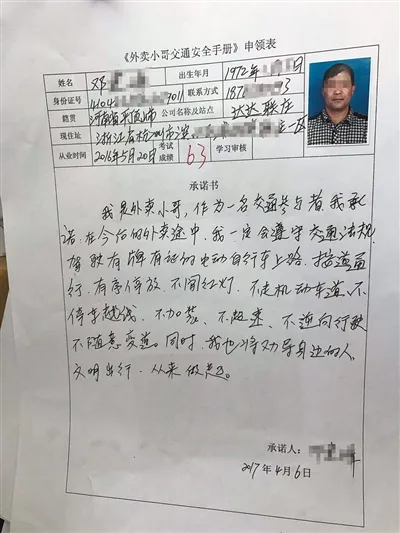 《外卖小哥交通安全手册》申领表
姓名 邓 出生年月 1972
身份证号 4104 7011 联系方式 187 3
籍贯 河南省平顶山 公司名称及站点 达达联庄
现住址 浙江省杭州市滨 一区
从业时间 2016年5月20日 考试成绩 63 学习审核
承诺书
我是外卖小哥,作为一名交通参与者,我承
诺:在今后的外卖途中,我一定会遵守交通法规,
驾驶有牌有证的电动自行车上路,按道通
行,有序停放,不闯红灯,不走机动车道,不
停车越线,不加装,不超速,不逆向行驶
不随意变道。同时,我也将劝导身边的人,
文明出行,从来做起。
承诺人:
2017年4月6日